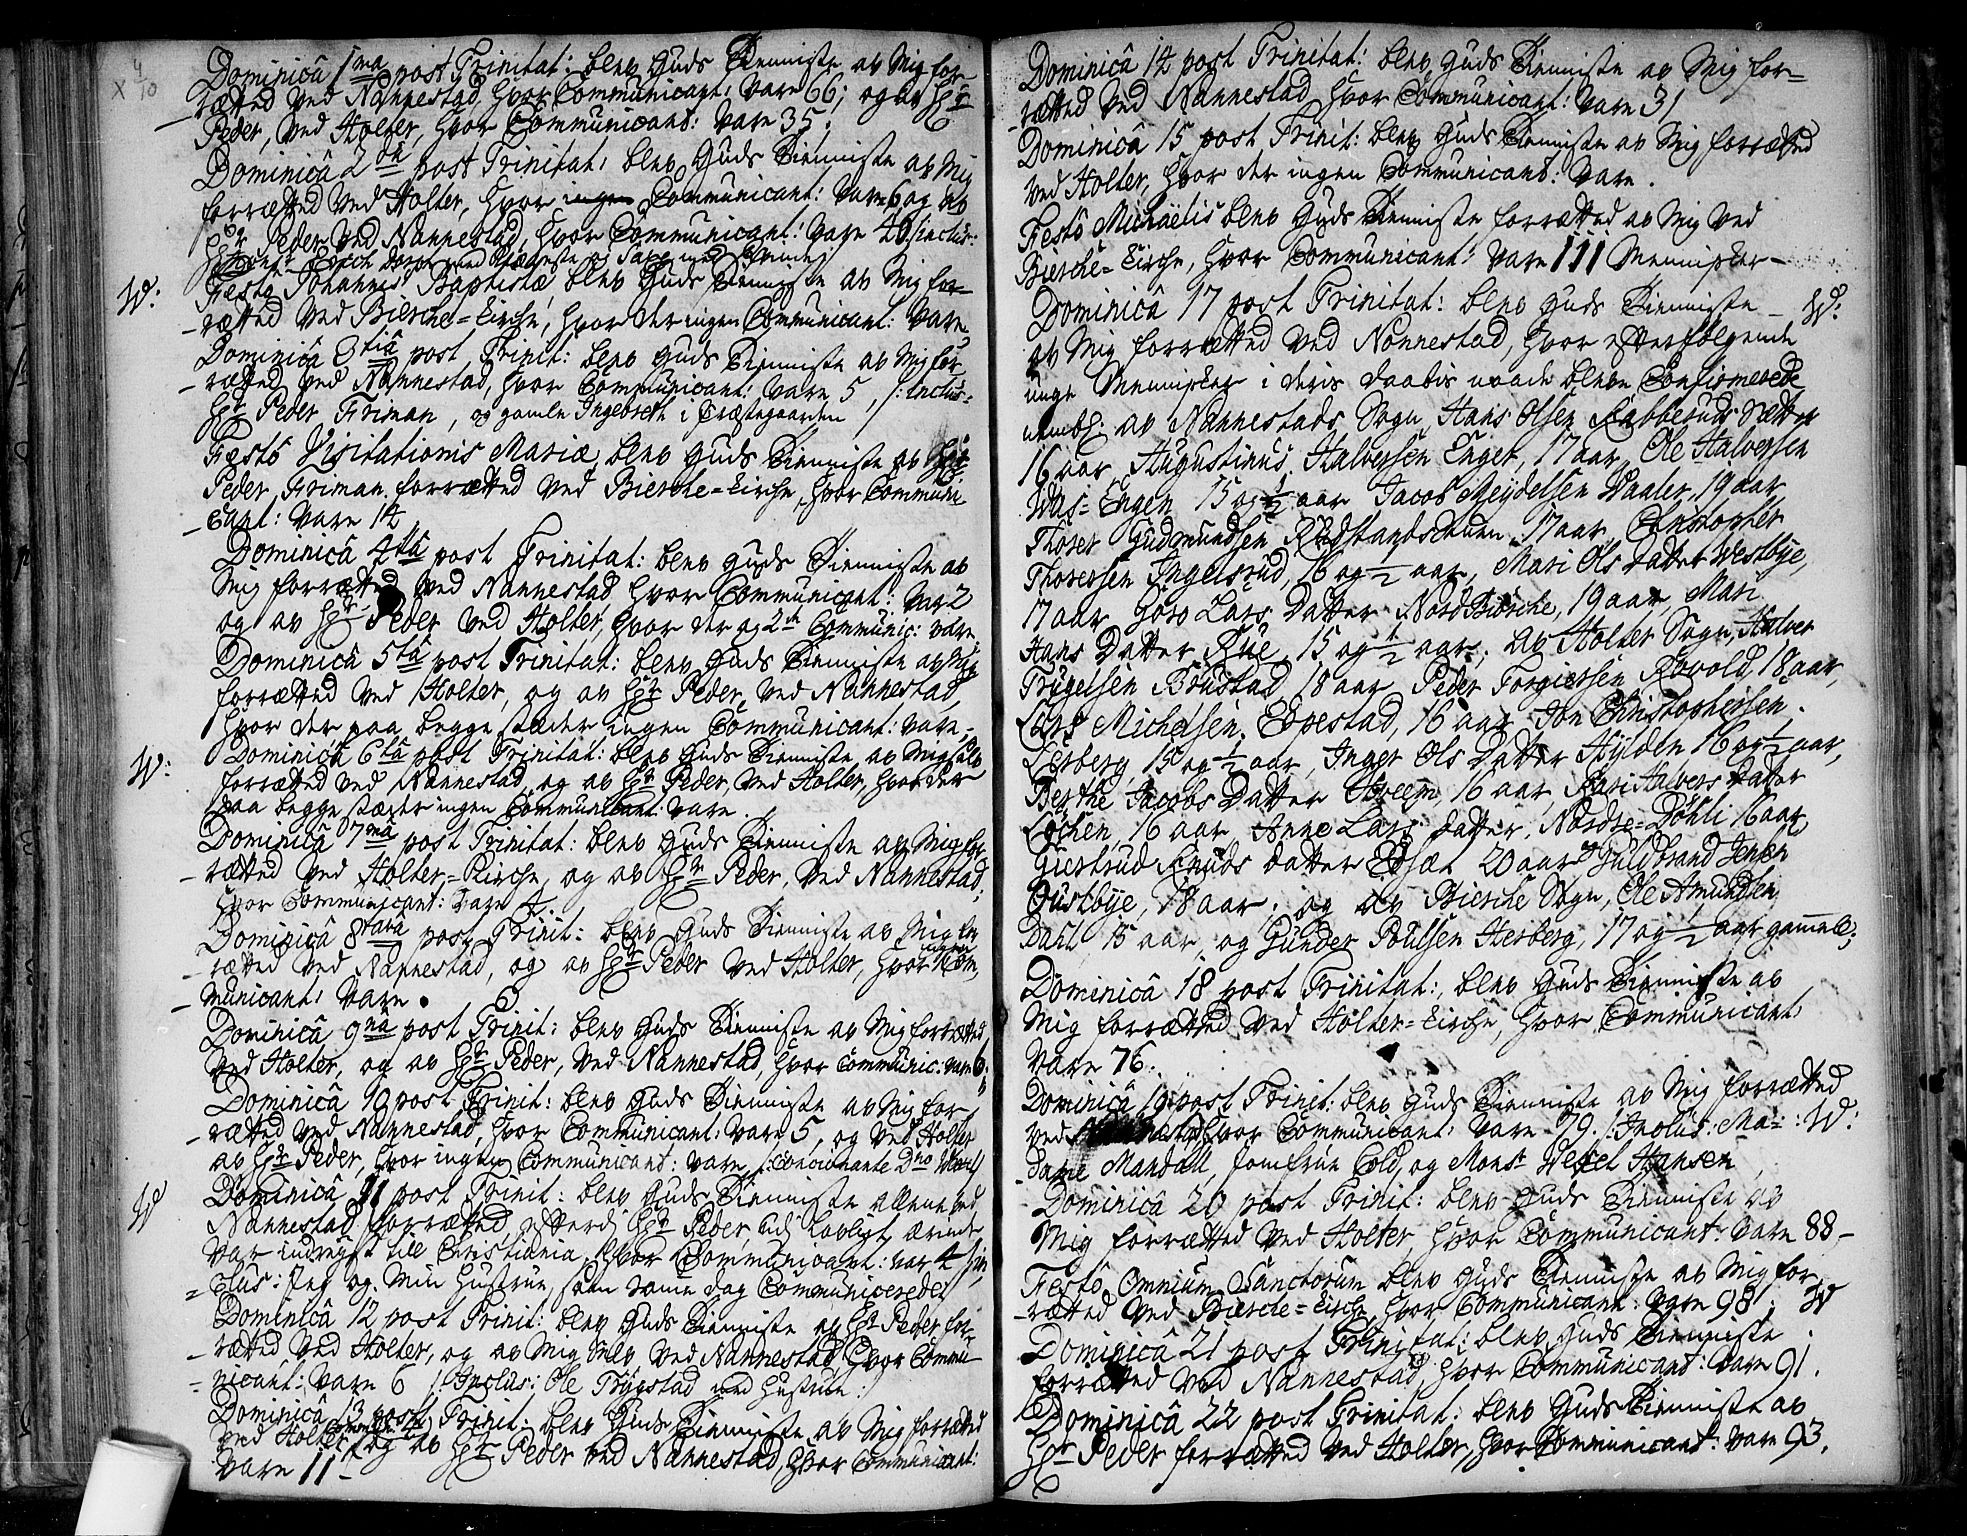 x 4/10
Dominicâ 1ma post Trinitat: blev Guds Tienniste av Mig for-
-rætted ved Nannestad, hvor Communicant: vare 66; og av Hr
Peder, ved Holter, hvor Communicant: vare 35.
Dominicâ 2da post Trinitat: blev Guds Tienniste av Mig
forrætted ved Holter, hvor ingen Communicant: vare 6 og av
Hr Peder ved Nannestad, hvor Communicant: vare 40 /:inclus:
Festo Johannis Baptistæ blev Guds Tienniste av Mig for-
W:
-rætted ved Biercke-Kirche, hvor der ingen Communicant: vare
Dominicâ 3tiâ post Trinit: blev Guds Tienniste av Mig for
-rætted ved Nannestad, hvor Communicant: vare 5, /:inclus:
Hr Peder Friman, og gamle Ingebreth i Præstegaarden
Festô Visitationis Mariæ blev Guds Tienniste av Hr
Peder Friman forrætted ved Biercke-Kirche, hvor Communi-
-cant: vare 14
Dominicâ 4tâ post Trinitat: blev Guds Tienniste av
Mig forrætted ved Nannestad hvor Communicant: var 2
og av Hr Peder ved Holter, hvor der og 2de Communic: vare
Dominicâ 5tâ post Trinitat: blev Guds Tienniste av Mig
forrætted ved Holter, og av Hr Peder, ved Nannestad,
hvor der paa begge stæder ingen Communicant: vare-
W:
Dominicâ 6tâ post Trinitat: blev Guds Tienniste av Mig selv
forrætted ved Nannestad, og av Hr Peder, ved Holter, hvor der
paa begge stæder ingen Communicant: vare.
Dominicâ 7mâ post Trinitat: blev Guds Tienniste av Mig for
-rætted ved Holter-Kirche, og av Hr Peder, ved Nannestad,
hvor Communicant: vare 4.
Dominicâ 8tavâ post Trinit: blev Guds Tienniste av Mig for
-rætted ved Nannestad, og av Hr Peder ved Holter, hvor ingen Com-
-municant: vare.
Dominicâ 9nâ post Trinit: blev Guds Tienniste av Mig forrætted
ved Holter, og av Hr Peder, ved Nannestad, hvor Communic: vare 6.
Dominicâ 10 post Trinit: blev Guds Tienniste av Mig for
-rætted ved Nannestad, hvor Communicant: vare 5, og ved Holter
av Hr Peder, hvor ingen Communicant: vare, /:Concionante Dno
W
Dominicâ 11 post Trinit: blev Guds Tienniste allene ved
Nannestad forrætted, efterdi Hr Peder, udi lovligt ærinde
var indreyst till Christiania, hvor Communicant: var 4 /:in-
-clus: Jeg og Min Hustrue, som samme dag Communicerede/
Dominicâ 12 post Trinit: blev Guds Tienniste av Hr Peder for-
-rætted ved Holter, og av Mig selv ved Nannestad, hvor Commu-
-nicant: vare 6 /:Inclus: Ole Trygstad med Hustrue:/
Dominicâ 13 post Trinit: blev Guds Tienniste av Mig forrætted
ved Holter, og av Hr Peder ved Nannestad, hvor Communicant:
vare 11-
Dominicâ 14 post Trinitat: blev Guds Tienniste av Mig for-
-rætted ved Nannestad hvor Communicant: vare 31
Dominicâ 15 post Trinit: blev Guds Tienniste av Mig forrætted
ved Holter, hvor der ingen Communicant: vare.
Festô Michaëlis blev Guds Tienniste forrætted av Mig ved
Biercke-Kirche, hvor Communicant: vare 111 Mennisker-
Dominicâ 17 post Trinitat: blev Guds Tienniste - W:
av Mig forrætted ved Nannestad, hvor efterfølgende
unge Mennisker i deris daabis naade bleve Confirmerede
nembl: av Nannestads Sogn, Hans Olsen Rabberuds Sætter
16 aar, Augustinus Halversen Enget, 17 aar, Ole Halversen
Wæs-Engen 15 og 1/2 aar Jacob Meydelsen Daaler, 19 aar,
Thorer Gudmundsen Rustandsduen 17 aar, Christopher
Thoresen Ingelsrud, 16 og 1/2 aar, Mari Ols Datter Westbye,
17 aar Goro Lars Datter NordBiercke, 19 aar Mari
Hans Datter Rue, 15 og 1/2 aar; av Holter Sogn, Halver
Trugelsen Brustad 18 aar Peder Torgiersen Røvold, 18 aar,
Lars Michelsen Eppestad, 16 aar Jon Christophersen
Lerberg 15 og 1/2 aar, Inger Ols Datter Hylden 16 og 1/2 aar,
Berthe Jacobs Datter Hoeem, 16 aar Kari Halvers datter
Løchen, 16 aar Anne Lars datter, Nordre-Døhli 16 aar,
Giertrud Knuds datter Edsæt 20 aar og Guldbrand Jensen
Oustbye, 18 aar; og av Biercke Sogn, Ole Amundsen
Dahl 15 aar, og Gunder Poulsen Herberg, 17 og 1/2 aar gamle;
Dominicâ 18 post Trinitat:, blev Guds Tienniste av
Mig forrætted ved Holter-Kirche, hvor Communicant:
vare 76.
Dominicâ 19 post Trinit: blev Guds Tienniste av Mig forrætted
ved Nannestad, hvor Communicant: vare 99. /:Inclus: Ma-: W:
-dame Mandall, Jomfrue Cold, og Monsr Wessel Hansen
Dominicâ 20 post Trinit: blev Guds Tienniste av
Mig forrætted ved Holter, hvor Communicant: vare 88,-
Festô Omnium Sanctorum blev Guds Tienniste av Mig for
-rætted ved Biercke-Kirche hvor Communicant: vare 98; W
Dominicâ 21 post Trinitat: blev Guds Tienniste
forrætted ved Nannestad, hvor Communicant: vare 91.
Dominicâ 22 post Trinitat: blev Guds Tienniste av
Hr Peder forrætted ved Holter, hvor Communicant: vare 93.